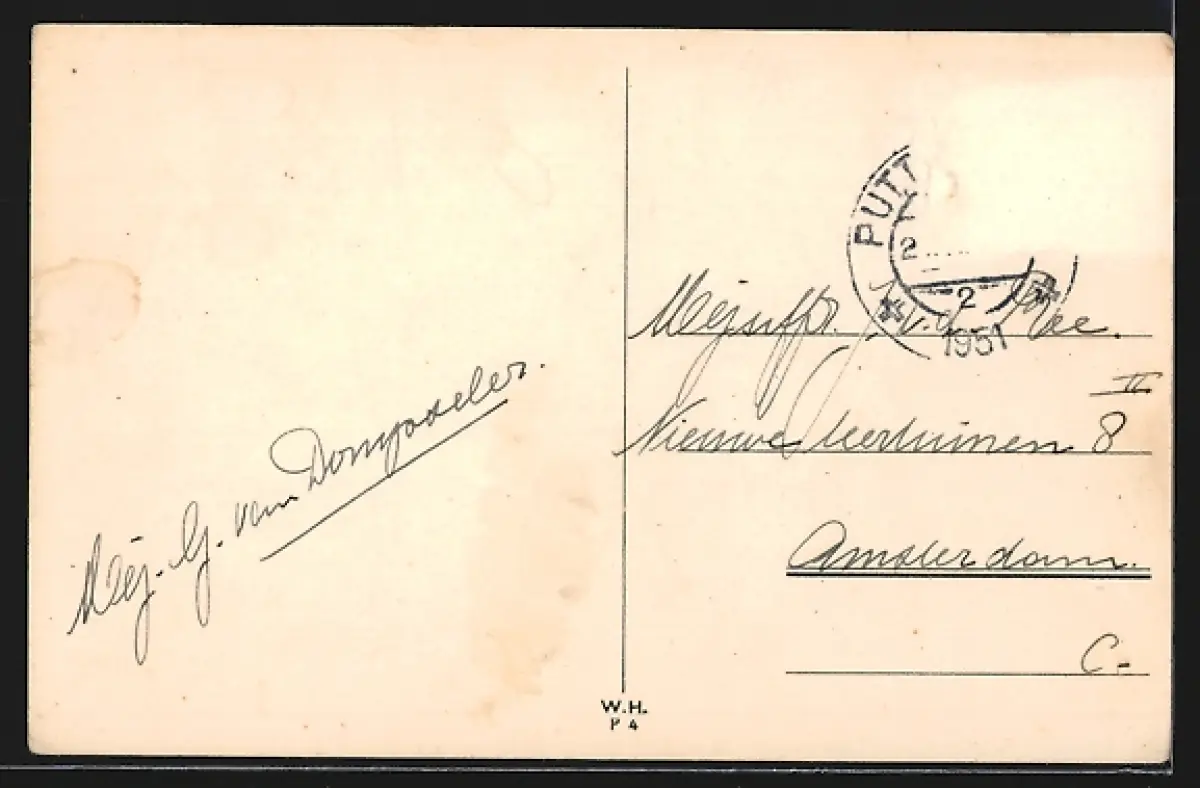 Mej. G. van Dompseler.
PUTT
2
2
1951
Mejuffr. J. v. d.
II
Nieuwe Leertuinen 8
Amsterdam.
C.-
W.H.
P 4